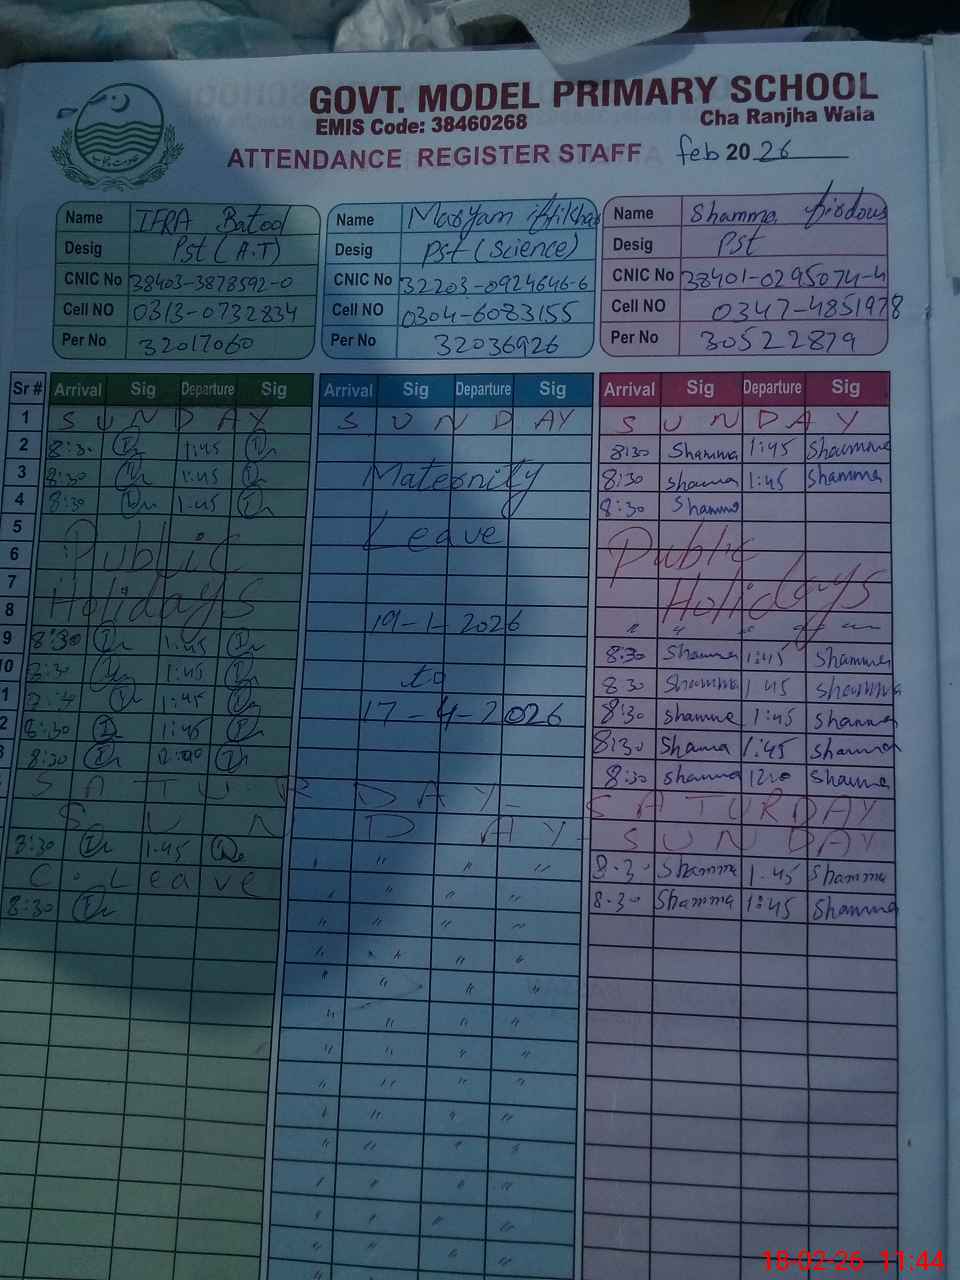 GOVT. MODEL PRIMARY SCHOOL
EMIS Code: 38460268 Cha Ranjha Wala
ATTENDANCE REGISTER STAFF feb 2026
Name IFRA Batool Name Maryam iftikhar Name Shamma firdous
Desig Pst (A.T) Desig Pst (Science) Desig Pst
CNIC No 38403-3878592-0 CNIC No 32203-0924646-6 CNIC No 38401-0295074-4
Cell NO 0313-0732834 Cell NO 0304-6083155 Cell NO 0347-4851978
Per No 32017060 Per No 32036926 Per No 30522879
Sr # Arrival Sig Departure Sig Arrival Sig Departure Sig Arrival Sig Departure Sig
1 SUNDAY SUNDAY SUNDAY
2 8:30 1:45 8:30 Shamma 1:45 Shamma
3 8:30 1:45 Maternity 8:30 Shamma 1:45 Shamma
4 8:30 1:45 8:30 Shamma
5 Public Leave Public
6
7 Holidays Holidays
8 19-1-2026
9 8:30 1:45 8:30 Shamma 1:45 Shamma
10 8:30 1:45 to 8:30 Shamma 1:45 Shamma
1 1:45 17-4-2026 8:30 Shamma 1:45 Shamma
2 8:30 1:45 8:30 Shamma 1:45 Shamma
3 8:30 12:00 8:30 Shamma Shamma
SATURDAY- SATURDAY
SUNDAY- SUNDAY
8:30 1:45 " " " 8:30 Shamma 1:45 Shamma
C. Leave " " " 8:30 Shamma 1:45 Shamma
8:30 " " "
18-02-26 11:44